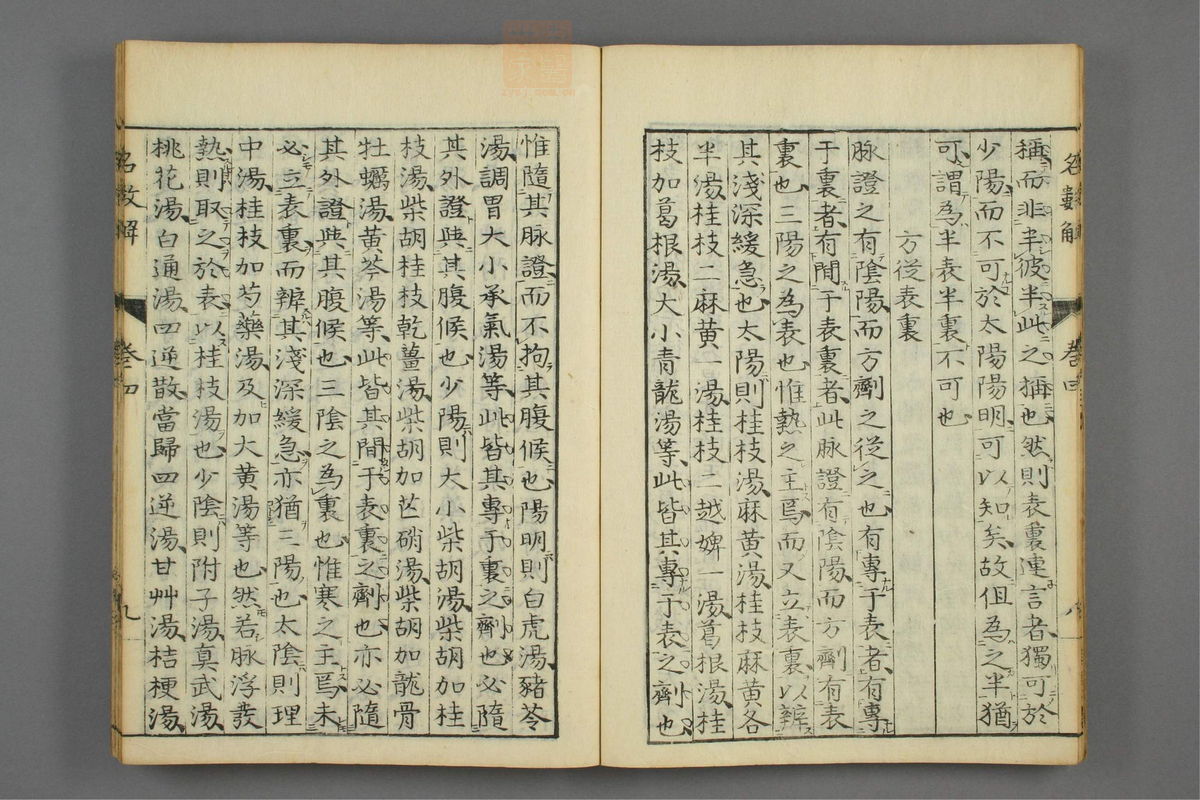 稱而非半彼半此之稱也然則表裏連言者獨可於
少陽而不可於太陽陽明可以知矣故但為之半猶
可謂為半表半裏不可也
方從表裏
脉證之有陰陽而方劑之從之也有專于表者有專
于裏者有間于表裏者此脉證有陰陽而方劑有表
裏也三陽之為表也惟熱之主焉而又立表裏以辨
其淺深緩急也太陽則桂枝湯麻黃湯桂枝麻黃各
半湯桂枝二麻黃一湯桂枝二越婢一湯葛根湯桂
枝加葛根湯大小青龍湯等此皆其專于表之劑也
名數解 卷四 八
惟隨其脉證而不拘其腹候也陽明則白虎湯豬苓
湯調胃大小承氣湯等此皆其專于裏之劑也必隨
其外證與其腹候也少陽則大小柴胡湯柴胡加桂
枝湯柴胡桂枝乾薑湯柴胡加芒硝湯柴胡加龍骨
牡蠣湯黃芩湯等此皆其間于表裏之劑也亦必隨
其外證與其腹候也三陰之為裏也惟寒之主焉未
必立表裏而辨其淺深緩急亦猶三陽也太陰則理
中湯桂枝加芍藥湯及加大黃湯等也然若脉浮發
熱則取之於表以桂枝湯也少陰則附子湯真武湯
桃花湯白通湯四逆散當歸四逆湯甘艸湯桔梗湯
名數解 卷四 九